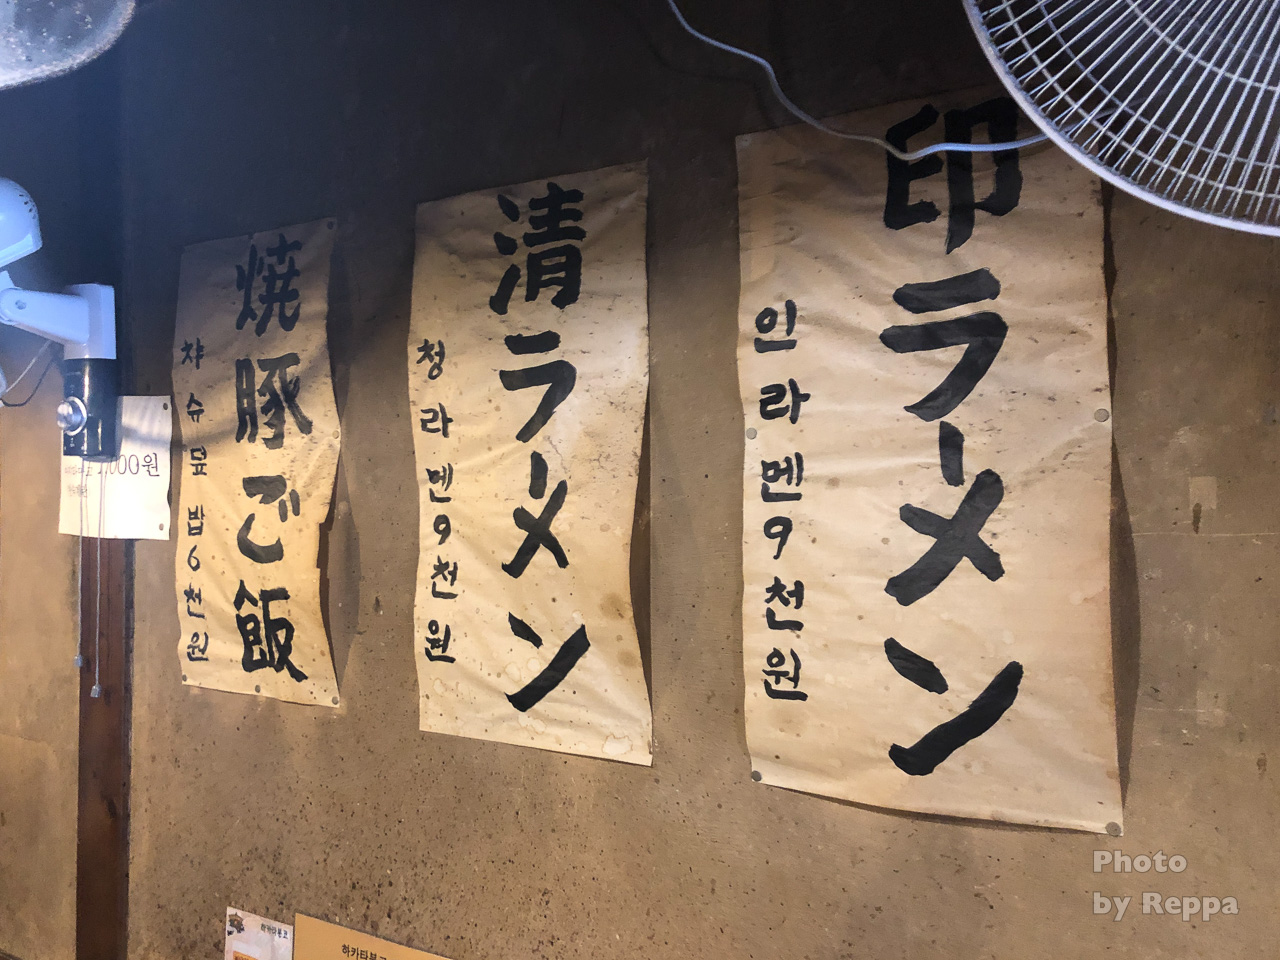 印ラーメン
인라멘9천원
清ラーメン
청라멘9천원
焼豚ご飯
챠슈덮밥6천원
000원
하카타분코
하카타분코
Photo
by Reppa